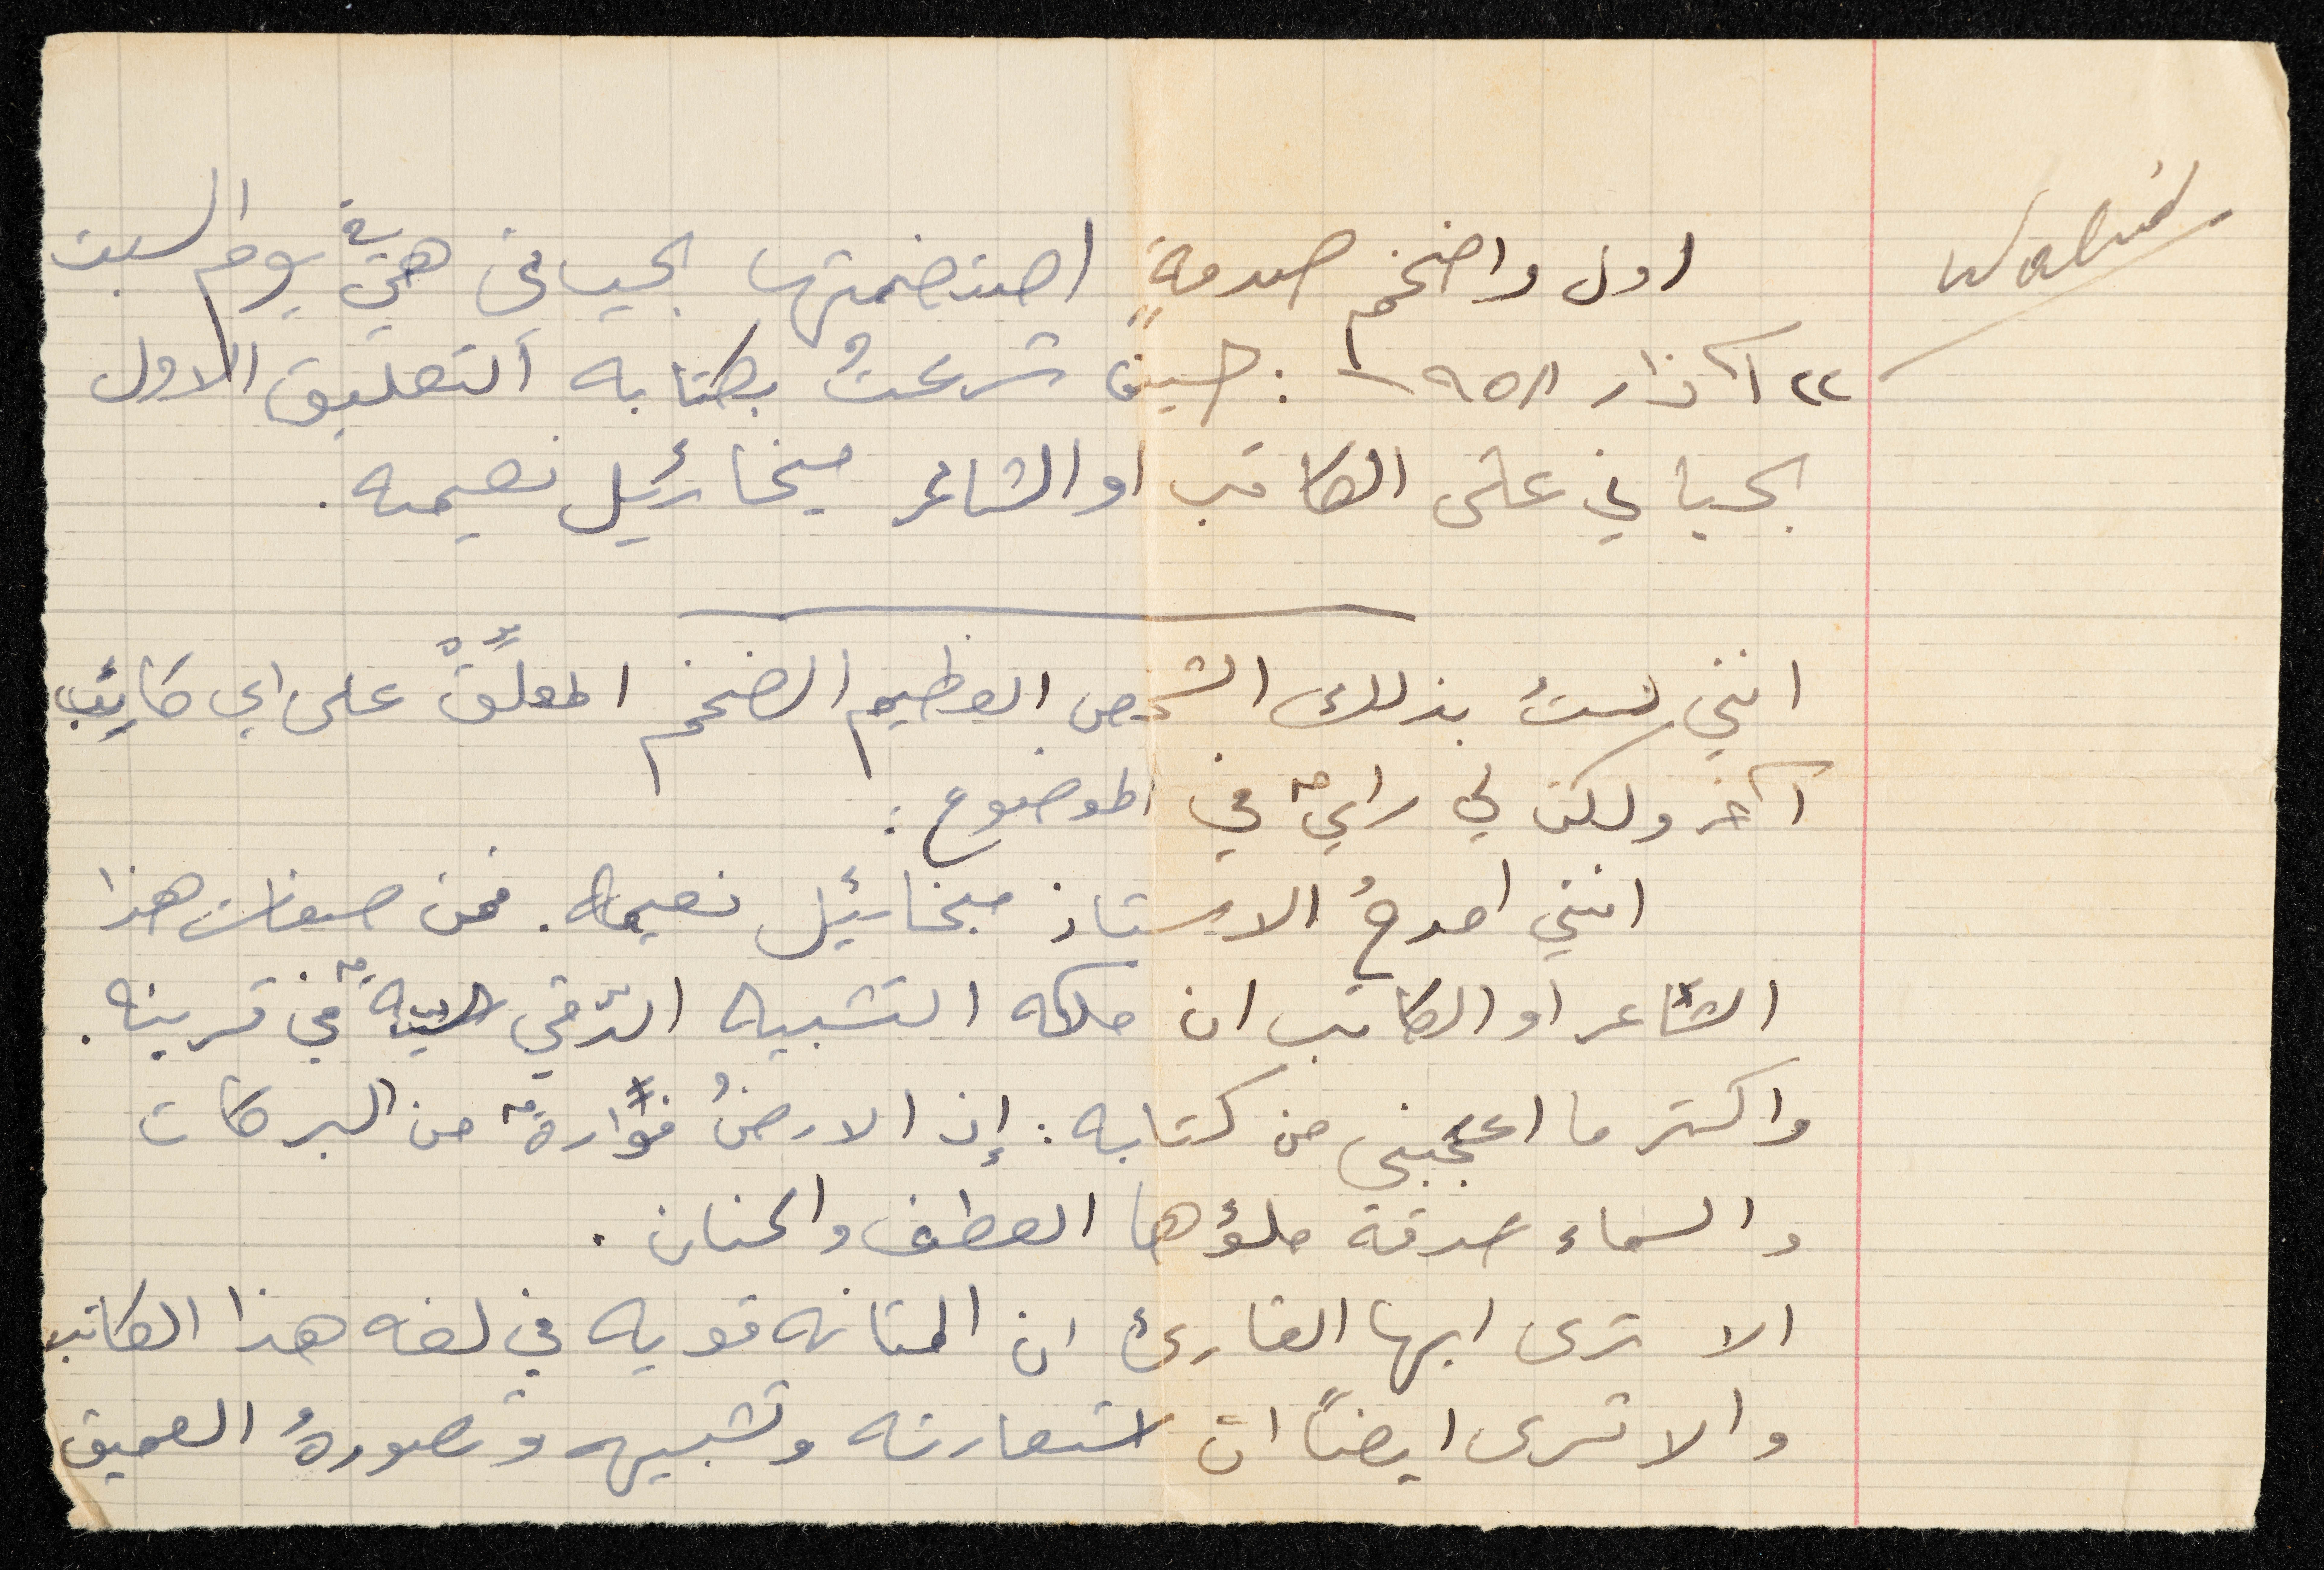 Walid
اول واضخم صدمةٍ اصتضمتها بحياتي هي في يوم السبت
٢٢ آذار ١٩٥٨ : حين شرعتُ بكتابه التعليق الاول
بحياتي على الكاتب او الشاعر ميخائيل نعيمه .
انني لستُ بذلك الشخص العظيم الضخم المعلِّقْ على اي كاتب
آخر ولكن لي رايٌ في الموضوع :
انني امدحُ الاستاذ ميخائيل نعيمه . فمن صفات هذا
الشاعر او الكاتب ان ملكه التشبيه الرقي في قرينه .
واكثر ما اعجبني من كتابه : إن الارضُ فوَّارةٌ من البركات
والسماء غدقة ملؤها العطف والحنان .
الا ترى ايها القارئ ان المتانه قويه في لغه هذا الكاتب
والا ترى ايضاً ان استعارته وتشبيهه وتصورهُ العميق